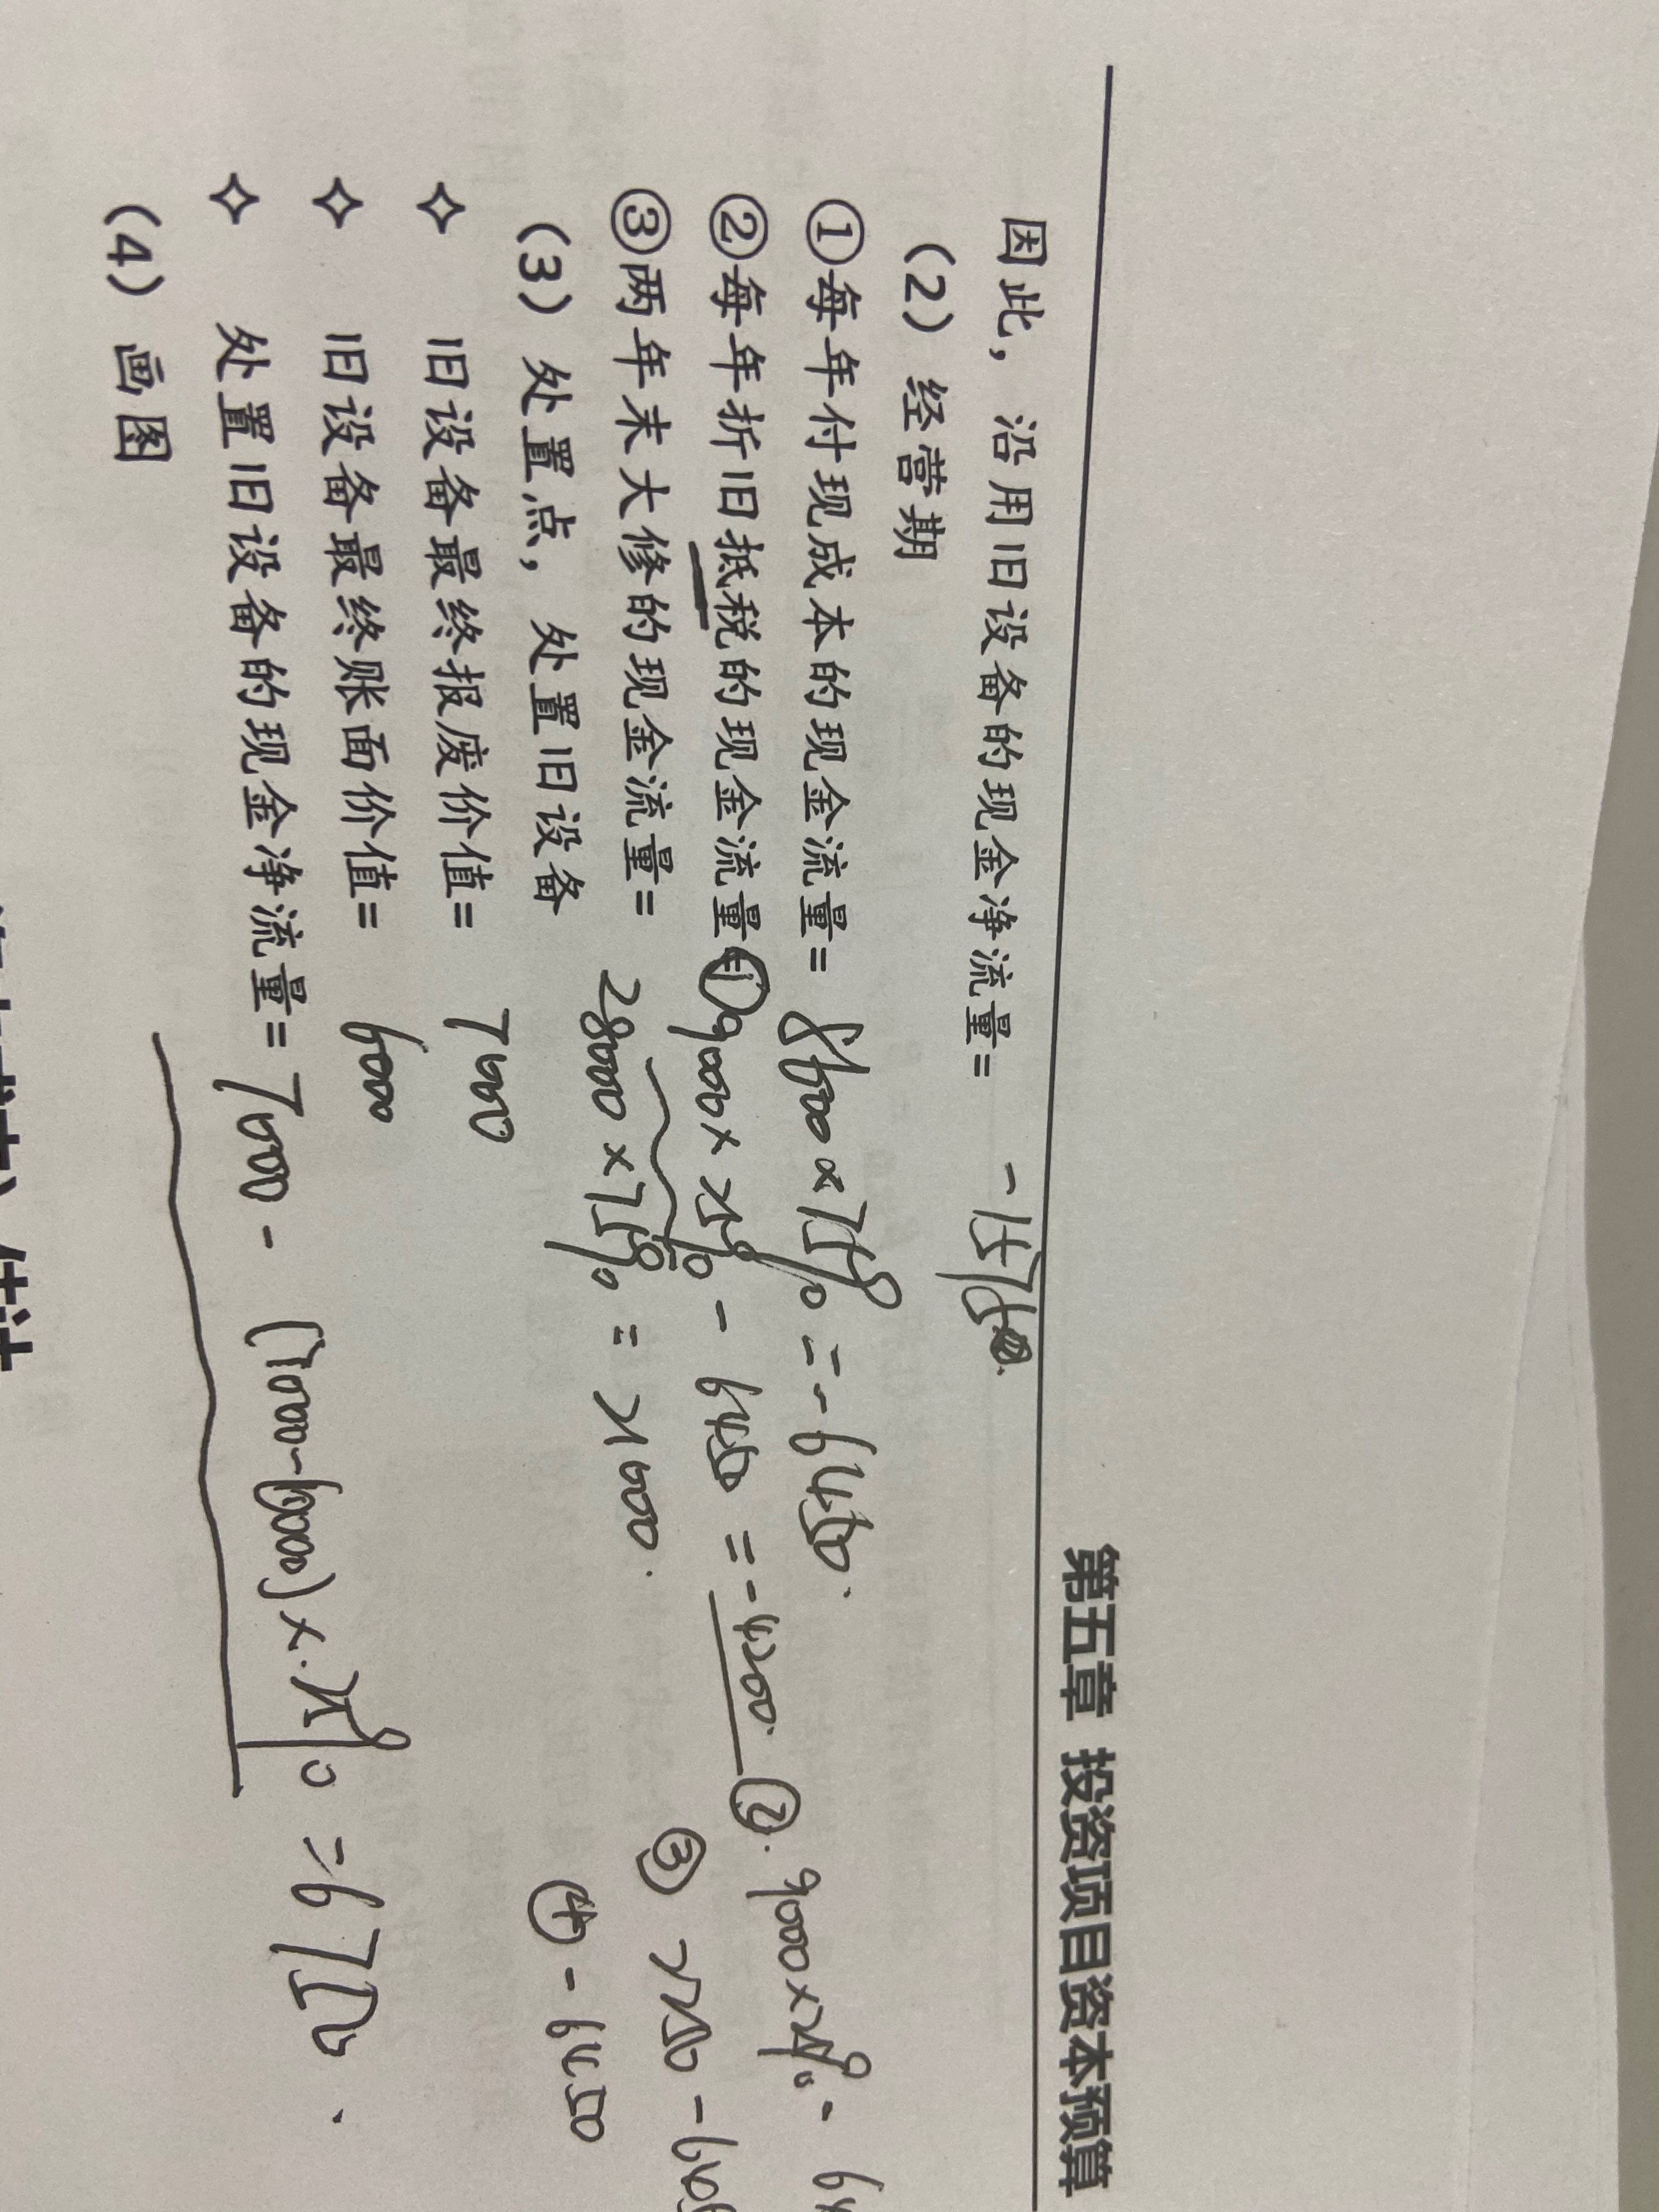 第五章 投资项目资本预算
因此，沿用旧设备的现金净流量=
（2）经营期
①每年付现成本的现金流量= 8600×75% = -6450.
②每年折旧抵税的现金流量= ①9000×25% - 6450 = -4200. ②. 9000×25% -
③两年末大修的现金流量= 28000×75% = 21000. ③ 2250 -
（3）处置点，处置旧设备 ④ -6450
✧ 旧设备最终报废价值= 7000
✧ 旧设备最终账面价值= 6000
✧ 处置旧设备的现金净流量= 7000 - (7000-6000)×25% = 6750.
（4）画图